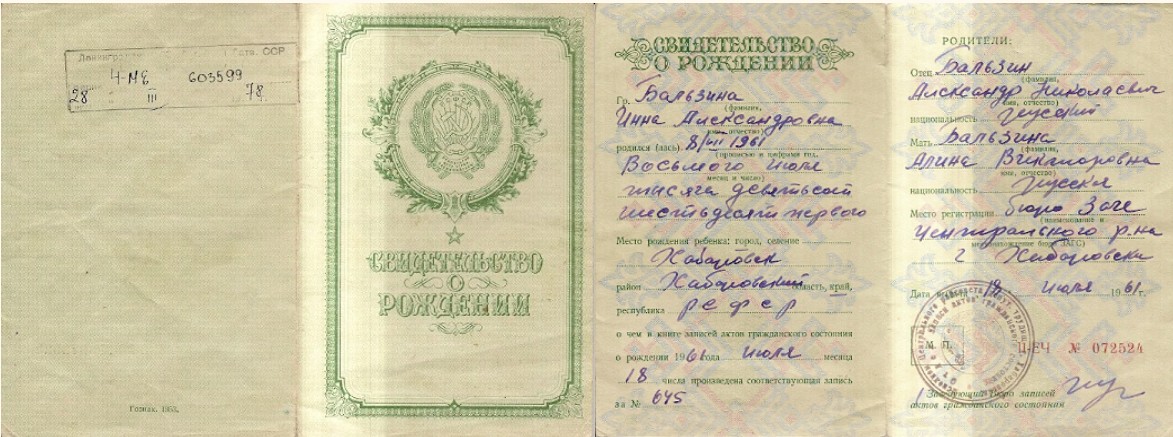 4-МЕ 603599
28 III 78
Гознак. 1953.
СВИДЕТЕЛЬСТВО
О
РОЖДЕНИИ
СВИДЕТЕЛЬСТВО
О РОЖДЕНИИ
Гр. Бальзина
(фамилия,
Инна Александровна
имя, отчество)
родился (лась) 8/VII 1961
(прописью и цифрами год,
Восьмого июля
месяц и число)
тысяча девятьсот
шестьдесят первого
Место рождения ребенка: город, селение
Хабаровск
район Хабаровский область, край,
республика РСФСР
о чем в книге записей актов гражданского состояния
о рождении 1961 года июля месяца
18 числа произведена соответствующая запись
за № 645
РОДИТЕЛИ:
Отец Бальзин
(фамилия,
Александр Николаевич
имя, отчество)
национальность русский
Мать Бальзина
(фамилия,
Алина Викторовна
имя, отчество)
национальность русская
Место регистрации бюро Загс
(наименование и
Центрального р-на
местонахождение бюро ЗАГС)
г. Хабаровска
Дата выдачи 18 июля 1961 г.
М. П.
II-ЕЧ № 072524
Заведующий бюро записей
актов гражданского состояния